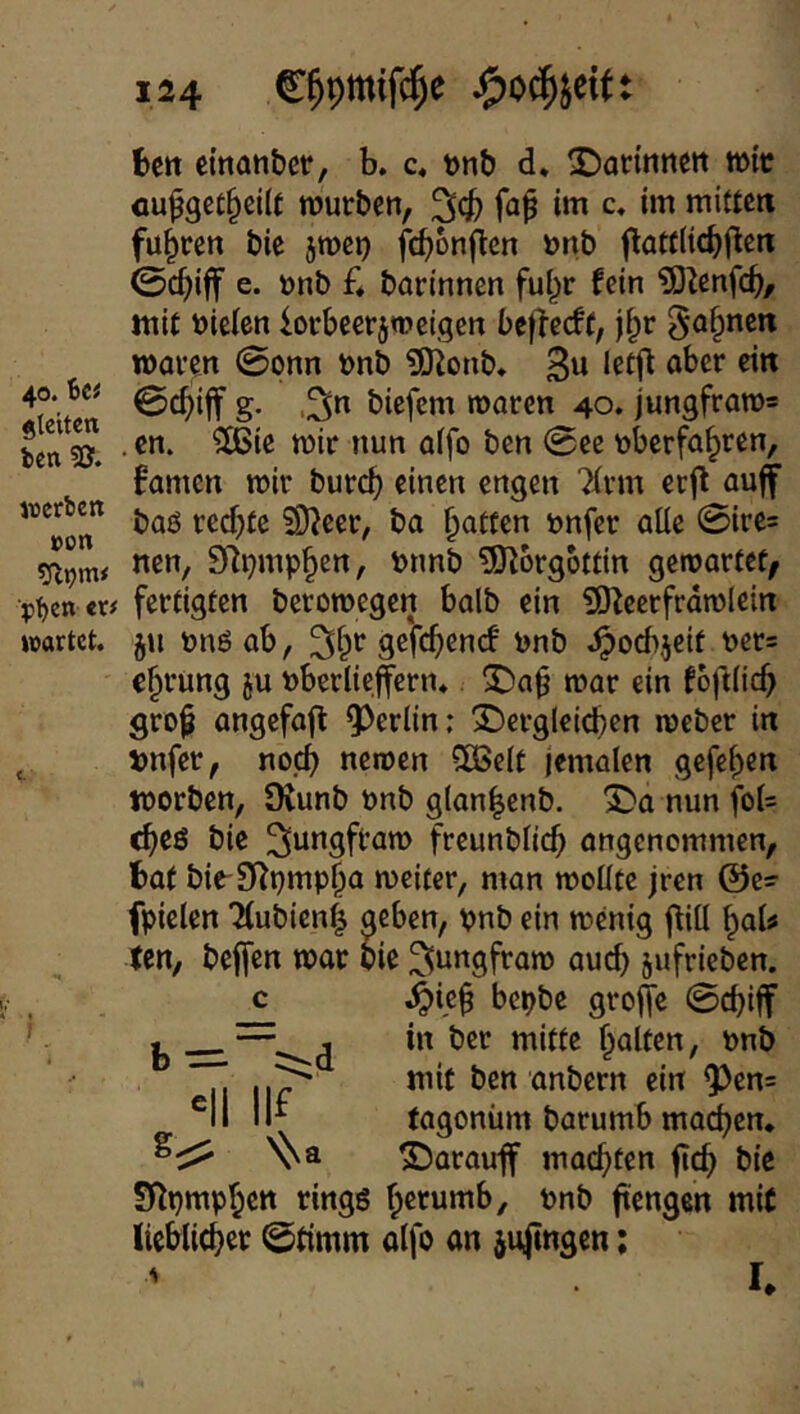 124 Chymische Hochzeit:
ben einander, b. c. vnd d. Darinnen wir
außgetheilt wurden, Jch saß im c. im mitten
fuhren die zwey schönsten vnd stattlichsten
Schiff e. vnd f. darinnen fuhr kein Mensch,
mit vielen Lorbeerzweigen besteckt, jhr Fahnen
waren Sonn vnd Mond. Zu letst aber ein
Schiff g. Jn diesem waren 40. jungfraw⸗
en. Wie wir nun also den See vberfahren,
kamen wir durch einen engen Arm erst auff
das rechte Meer, da hatten vnser alle Sire⸗
nen, Nymphen, vnnd Mörgöttin gewartet,
fertigten derowegen bald ein Meerfräwlein
zu vns ab, Jhr geschenck vnd Hochzeit ver⸗
ehrung zu vberlieffern. Daß war ein köstlich
groß angefast Perlin: Dergleichen weder in
vnser, noch newen Welt jemalen gesehen
worden, Rund vnd glantzend. Da nun sol⸗
ches die Jungfraw freundlich angenommen,
bat die Nympha weiter, man wollte jren Ge⸗
spielen Audientz geben, vnd ein wenig still hal⸗
ten, dessen war die Jungfraw auch zufrieden.
Hieß beyde grosse Schiff
in der mitte halten, vnd
mit den andern ein Pen⸗
tagonüm darumb machen.
Darauff machten sich die
Nymphen rings herumb, vnd fiengen mit
lieblicher Stimm also an zusingen;
I.
40. be⸗
gleiten
den V.
werden
von
Nym⸗
phen er⸗
wartet.
c
b d
e f
g a